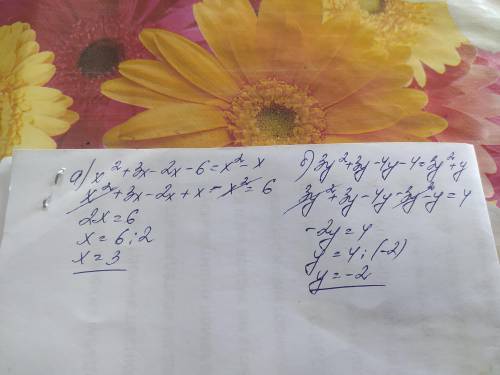 а) x²+3x-2x-6=x²-x
x²+3x-2x+x-x²=6
2x=6
x=6:2
x=3
б) 3y²+3y-4y-4=3y²+y
3y²+3y-4y-3y²-y=4
-2y=4
y=4:(-2)
y=-2